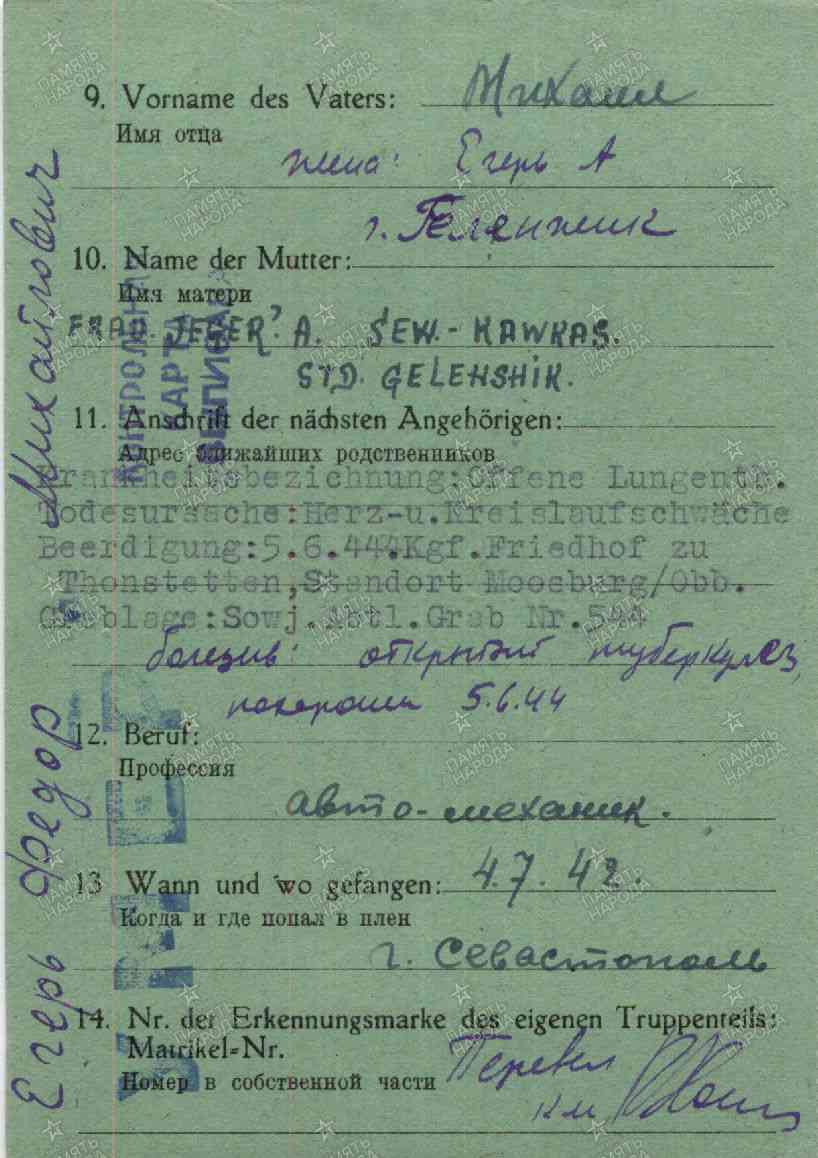 9. Vorname des Vaters: Михаил
Имя отца
жена: Егерь А
г. Геленжик
10. Name der Mutter:
Имя матери
FRAU JEGER' A. SEW.-KAWKAS.
STD. GELENSHIK.
11. Anschrift der nächsten Angehörigen:
Адрес ближайших родственников
Krankheitsbezichnung:Offene Lungentb.
Todesursache:Herz-u.Kreislaufschwäche
Beerdigung:5.6.444.Kgf.Friedhof zu
Thonstetten,Standort Moosburg/Obb.
Grablage:Sowj.Abtl.Grab Nr.544
болезнь: открытый туберкулез,
похоронен 5.6.44
12. Beruf:
Профессия
авто-механик.
13 Wann und wo gefangen: 4.7.42.
Когда и где попал в плен
г. Севастополь
14. Nr. der Erkennungsmarke des eigenen Truppenteils:
Matrikel-Nr.
Номер в собственной части
Перевел
Егерь Федор Михайлович
КАРТА
ВЫПИСАНА
УМЕР
ПАМЯТЬ НАРОДА